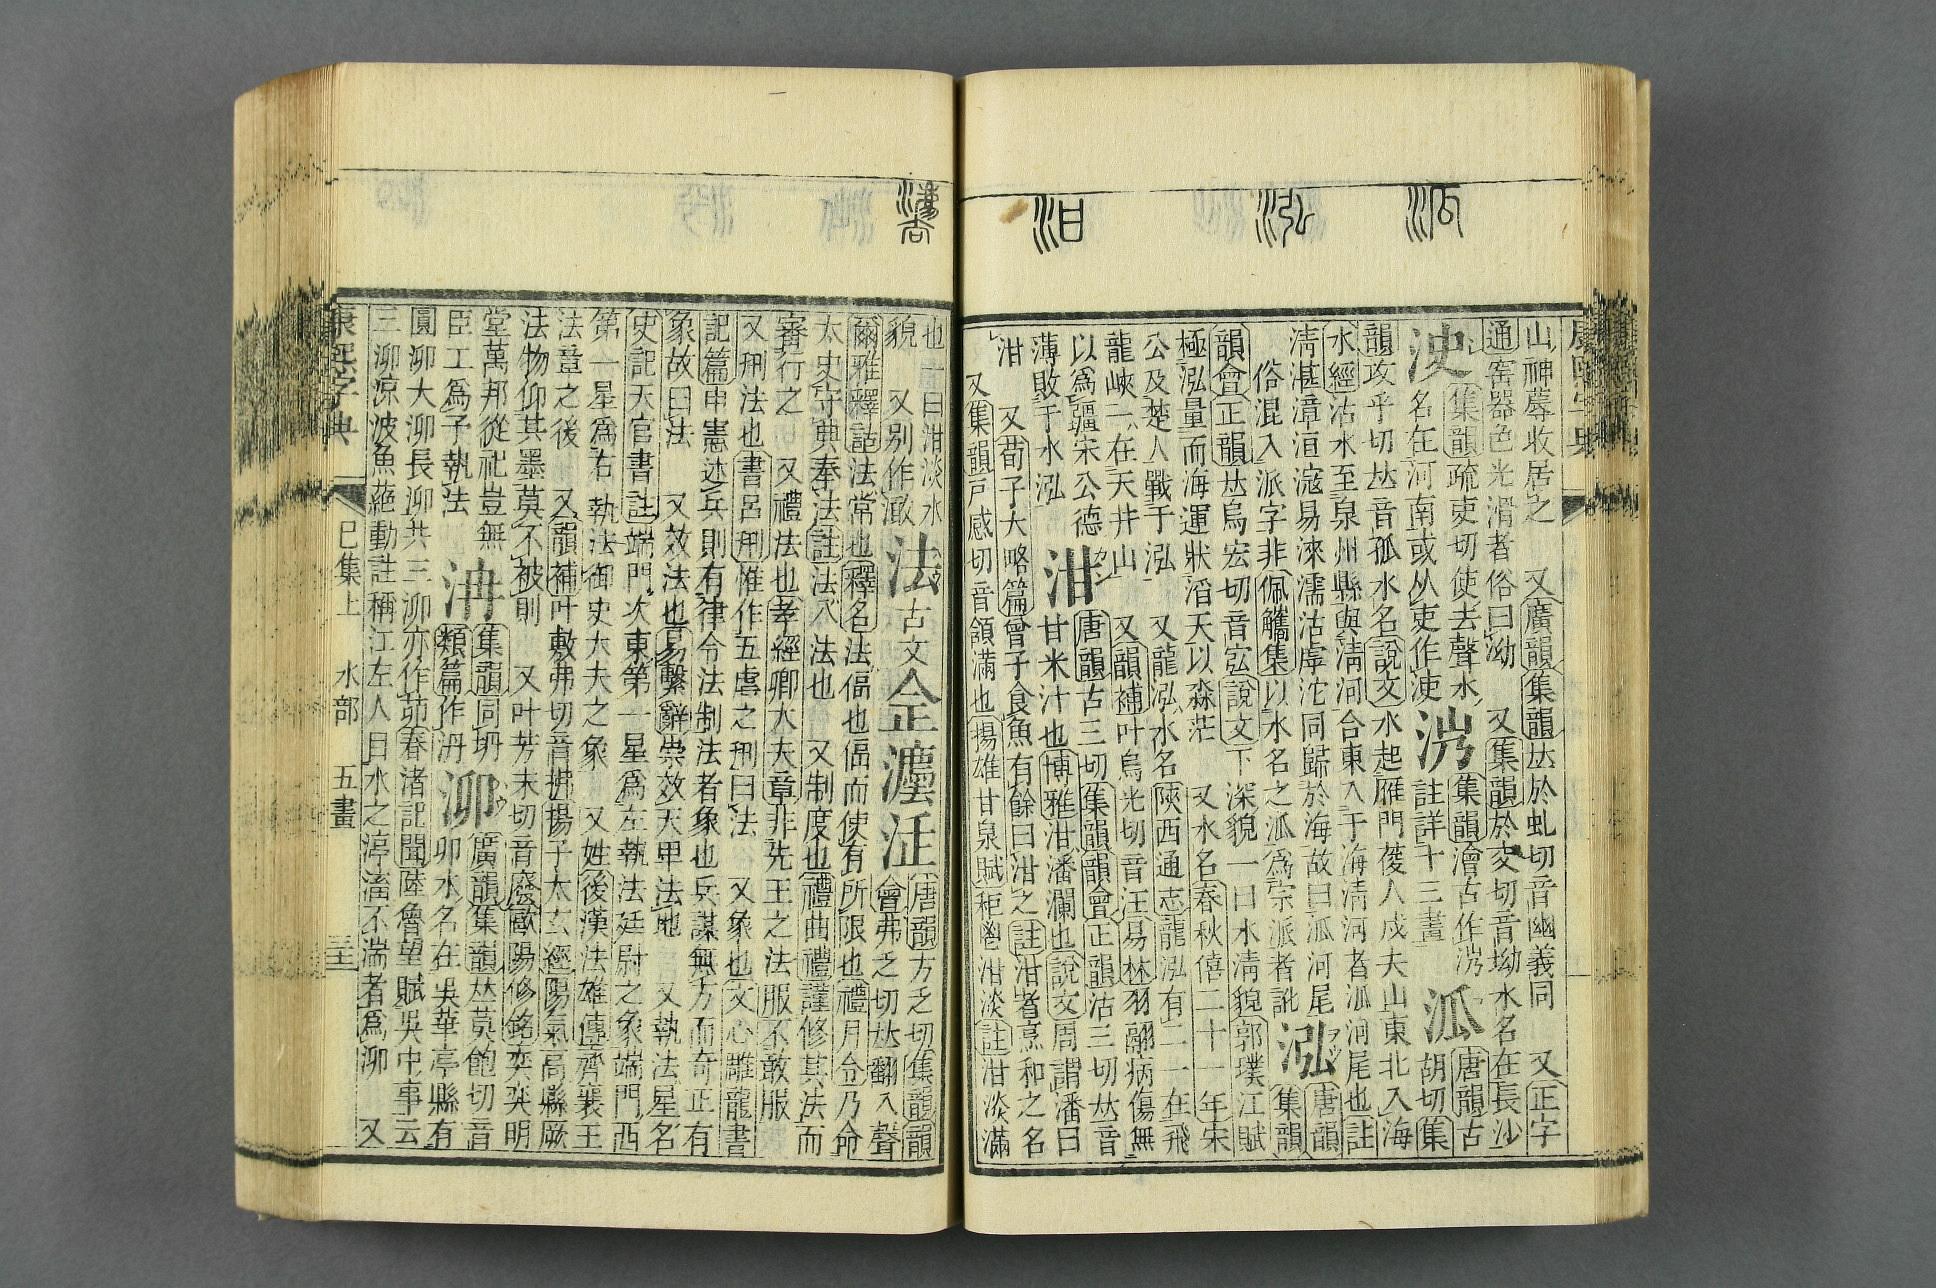 山神蓐收居之 又廣韻集韻𠀤於虬切音幽義同 又正字
通窑器色光滑者俗曰泑 又集韻於交切音坳水名在長沙
集韻疏吏切使去聲水
名在河南或从吏作
集韻澮古作
註詳十三畫
泒
唐韻古
胡切集
韻攻乎切𠀤音孤水名說文水起雁門葰人戍夫山東北入海
水經沽水至泉州縣與清河合東入于海清河者泒河尾也註
清湛漳洹滱易淶濡沽虖沱同歸於海故曰泒河尾
俗混入派字非佩觿集以水名之泒爲宗派者訛
泓
唐韻
集韻
韻會正韻𠀤烏宏切音宖說文下深貌一曰水清貌郭璞江賦
極泓量而海運狀滔天以淼茫 又水名春秋僖二十一年宋
公及楚人戰于泓 又龍泓水名陝西通志龍泓有二一在飛
龍峽一在天井山 又韻補叶烏光切音汪易林羽翮病傷無
以爲疆宋公德
薄敗于水泓
泔
唐韻古三切集韻韻會正韻沽三切𠀤音
甘米汁也博雅泔潘瀾也說文周謂潘曰
泔 又荀子大略篇曾子食魚有餘曰泔之註泔者烹和之名
又集韻戸感切音頷滿也揚雄甘泉賦秬鬯泔淡註泔淡滿
也一曰泔淡水
貌 又别作澉
法古文佱灋㳒
唐韻方乏切集韻韻
會弗乏切𠀤翻入聲
爾雅釋詁法常也釋名法偪也偪而使有所限也禮月令乃命
太史守典奉法註法八法也 又制度也禮曲禮謹修其法而
審行之 又禮法也孝經卿大夫章非先王之法服不敢服
又刑法也書呂刑惟作五虐之刑曰法 又象也文心雕龍書
記篇申憲述兵則有律令法制法者象也兵謀無方而奇正有
象故曰法 又效法也易繫辭崇效天甲法地 又執法星名
史記天官書註端門次東第一星爲左執法廷尉之象端門西
第一星爲右執法御史大夫之象 又姓後漢法雄傳齊襄王
法章之後 又韻補叶敷弗切音拂揚子太玄經陽氣高縣厥
法物仰其墨莫不被則 又叶芳未切音廢歐陽修銘奕奕明
堂萬邦從祀豈無
臣工爲予執法
集韻同坍
類篇作
泖
廣韻集韻𠀤莫飽切音
卯水名在吳華亭縣有
圓泖大泖長泖共三泖亦作茆春渚記聞陸魯望賦吳中事云
三泖凉波魚蕝動註稱江左人目水之渟滀不湍者爲泖 又
康熙字典 巳集上 水部 五畫